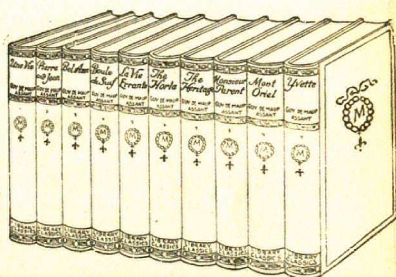 Une Vie
GUY DE MAUP
ASSANT
M
LIBRARY
CLASSICS
Pierre
and Jean
GUY DE MAUP
ASSANT
M
LIBRARY
CLASSICS
Bel Ami
GUY DE MAUP
ASSANT
M
LIBRARY
CLASSICS
Boule
de Suif
GUY DE MAUP
ASSANT
M
LIBRARY
CLASSICS
La Vie
Errante
GUY DE MAUP
ASSANT
M
LIBRARY
CLASSICS
The
Horla
GUY DE MAUP
ASSANT
M
LIBRARY
CLASSICS
The
Heritage
GUY DE MAUP
ASSANT
M
LIBRARY
CLASSICS
Monsieur
Parent
GUY DE MAUP
ASSANT
M
LIBRARY
CLASSICS
Mont
Oriol
GUY DE MAUP
ASSANT
M
LIBRARY
CLASSICS
Yvette
GUY DE MAUP
ASSANT
M
LIBRARY
CLASSICS
M